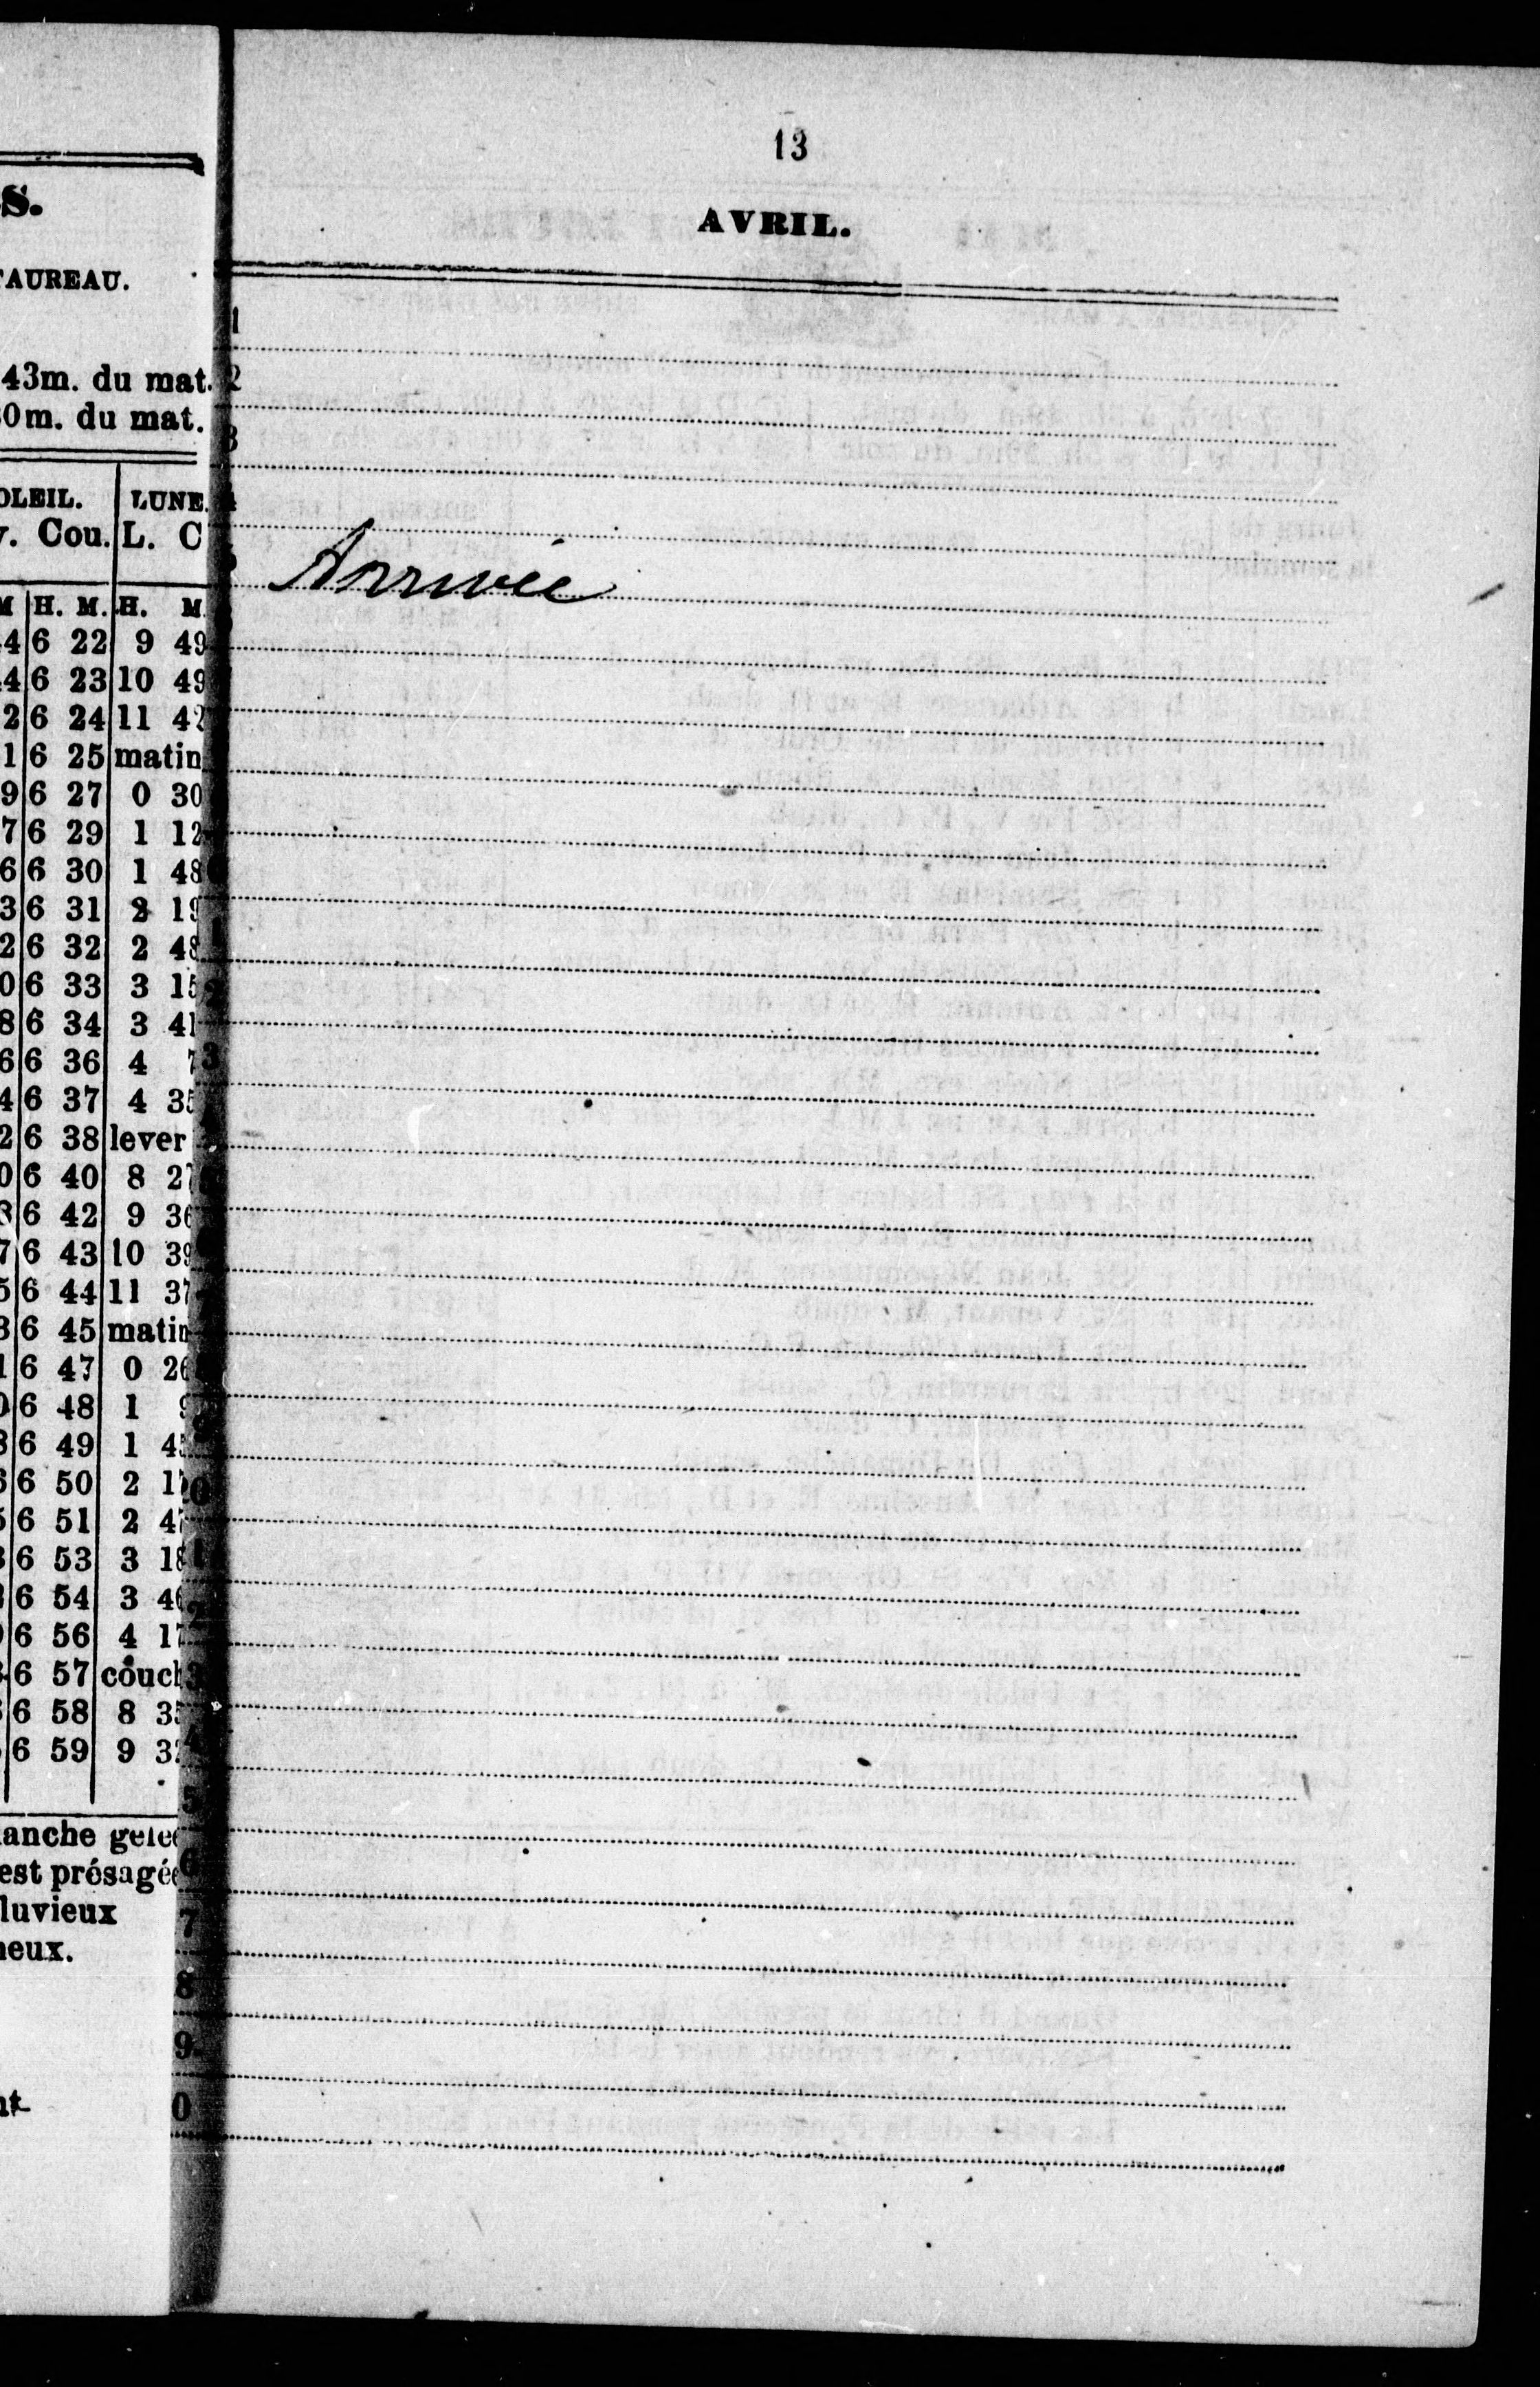 S.
TAUREAU.
43m. du mat.
0m. du mat.
OLEIL. LUNE.
v. Cou. L. C
M H. M. H. M.
4 6 22 9 49
4 6 23 10 49
2 6 24 11 42
1 6 25 matin
9 6 27 0 30
7 6 29 1 12
6 6 30 1 48
3 6 31 2 19
2 6 32 2 48
0 6 33 3 15
8 6 34 3 41
6 6 36 4 7
4 6 37 4 35
2 6 38 lever
0 6 40 8 27
8 6 42 9 36
7 6 43 10 39
5 6 44 11 37
3 6 45 matin
1 6 47 0 26
0 6 48 1 9
8 6 49 1 45
6 6 50 2 17
5 6 51 2 47
3 6 53 3 18
6 54 3 46
6 56 4 17
6 57 couch
6 58 8 35
6 59 9 32
anche gelee
est présagée
luvieux
neux.
13
AVRIL.
1
2
3
4
5 Arrivée
1
2
3
0
1
2
3
4
5
6
7
8
9
0